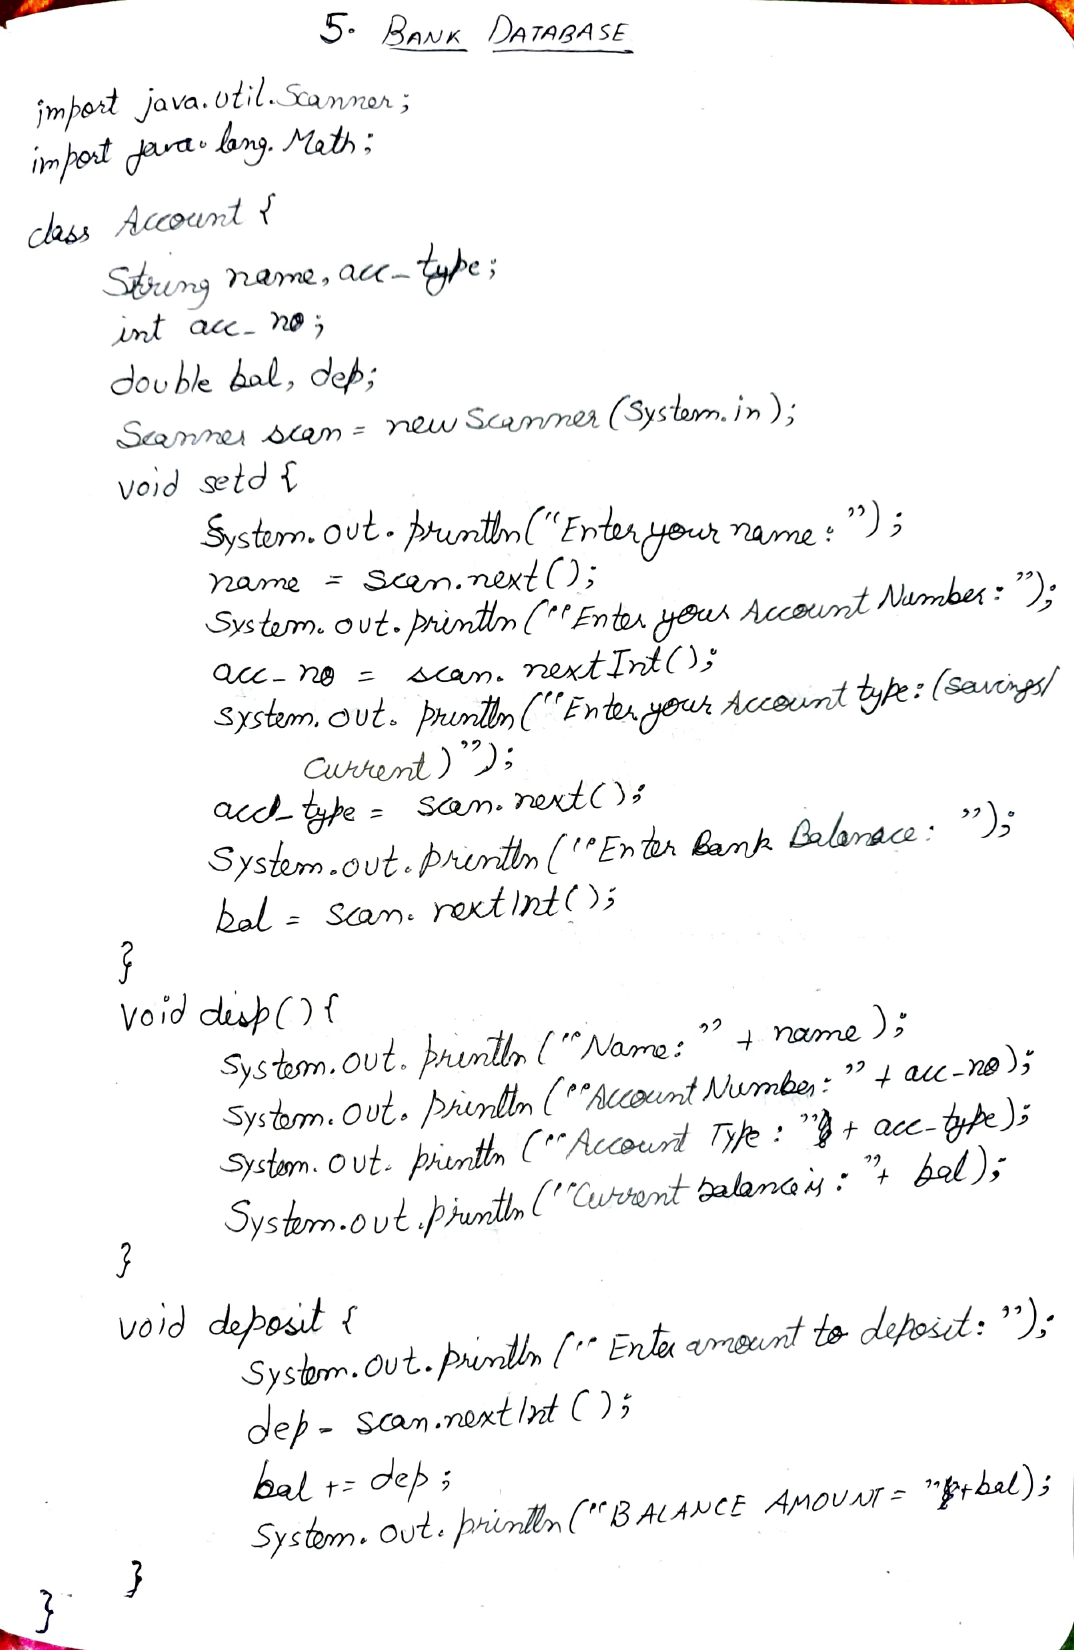 5. BANK DATABASE
import java.util.Scanner;
import java.lang.Math;
class Account {
String name, acc_type;
int acc_no;
double bal, dep;
Scanner scan = new Scanner (System.in);
void setd {
System.out.println("Enter your name: ");
name = scan.next();
System.out.println("Enter your Account Number: ");
acc_no = scan.nextInt();
system.out.println("Enter your Account type: (savings/
current)");
acct_type = scan.next();
System.out.println("Enter Bank Balanace: ");
bal = scan.nextInt();
}
void disp() {
System.out.println("Name: " + name);
System.out.println("Account Number: " + acc_no);
System.out.println("Account Type: " + acc_type);
System.out.println("Current balance is: " + bal);
}
void deposit {
System.out.println(" Enter amount to deposit: ");
dep = scan.nextInt();
bal += dep;
System.out.println("BALANCE AMOUNT = " + bal);
}
}